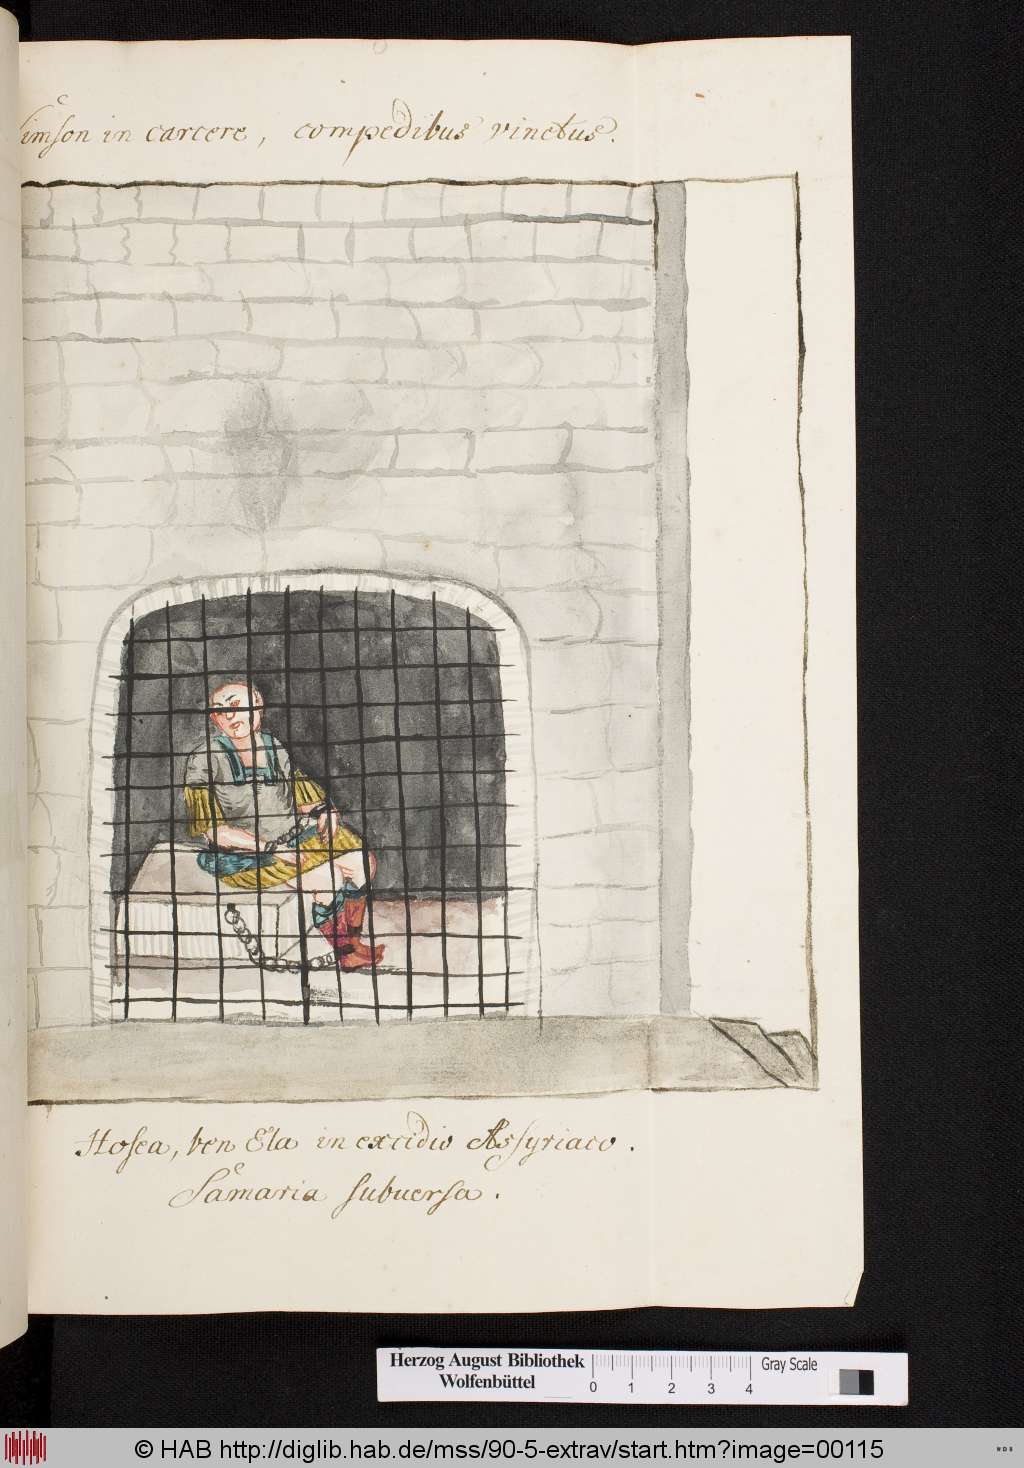 Simson in carcere, compedibus vinctus.
Hosea, ben Ela in excidio Assyriaco.
Samaria subuersa.
Herzog August Bibliothek
Wolfenbüttel
0 1 2 3 4
Gray Scale
© HAB http://diglib.hab.de/mss/90-5-extrav/start.htm?image=00115
WDB